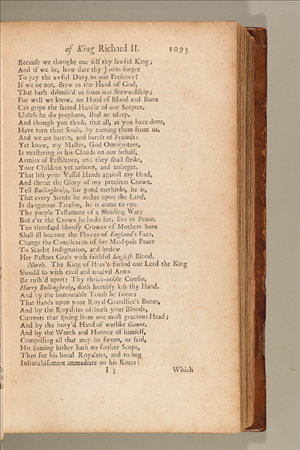 of King Richard II. 1093
Because we thought our self thy lawful King;
And if we be, how dare thy Joints forget
To pay the awful Duty to our Presence?
If we be not, shew us the Hand of God,
That hath dismiss'd us from our Stewardship;
For well we know, no Hand of Blood and Bone
Can gripe the sacred Handle of our Scepter,
Unless he do prophane, steal or usurp.
And though you think, that all, as you have done,
Have torn their Souls, by turning them from us,
And we are barren, and bereft of Friends:
Yet know, my Master, God Omnipotent,
Is mustering in his Clouds on our behalf,
Armies of Pestilence, and they shall strike
Your Children yet unborn, and unbegot,
That lift your Vassal Hands against my Head,
And threat the Glory of my precious Crown.
Tell Bullingbroke, for yond methinks, he is,
That every Stride he makes upon my Land,
Is dangerous Treason; he is come to ope
The purple Testament of a bleeding War;
But e'er the Crown he looks for, live in Peace,
Ten thousand bloody Crowns of Mothers Sons
Shall ill become the Flower of England's Face,
Change the Complexion of her Maid-pale Peace
To Scarlet Indignation, and bedew
Her Pastors Grass with faithful English Blood.
North. The King of Heav'n forbid our Lord the King
Should so with civil and uncivil Arms
Be rush'd upon: Thy thrice-noble Cousin,
Harry Bullingbroke, doth humbly kiss thy Hand,
And by the honourable Tomb he swears
That stands upon your Royal Grandsire's Bones,
And by the Royalties of both your Bloods,
Currents that spring from one most gracious Head;
And by the bury'd Hand of warlike Gaunt,
And by the Worth and Honour of himself,
Comprising all that may be sworn, or said,
His coming hither hath no further Scope,
Than for his lineal Royalties, and to beg
Infranchisement immediate on his Knees:
I 3 Which